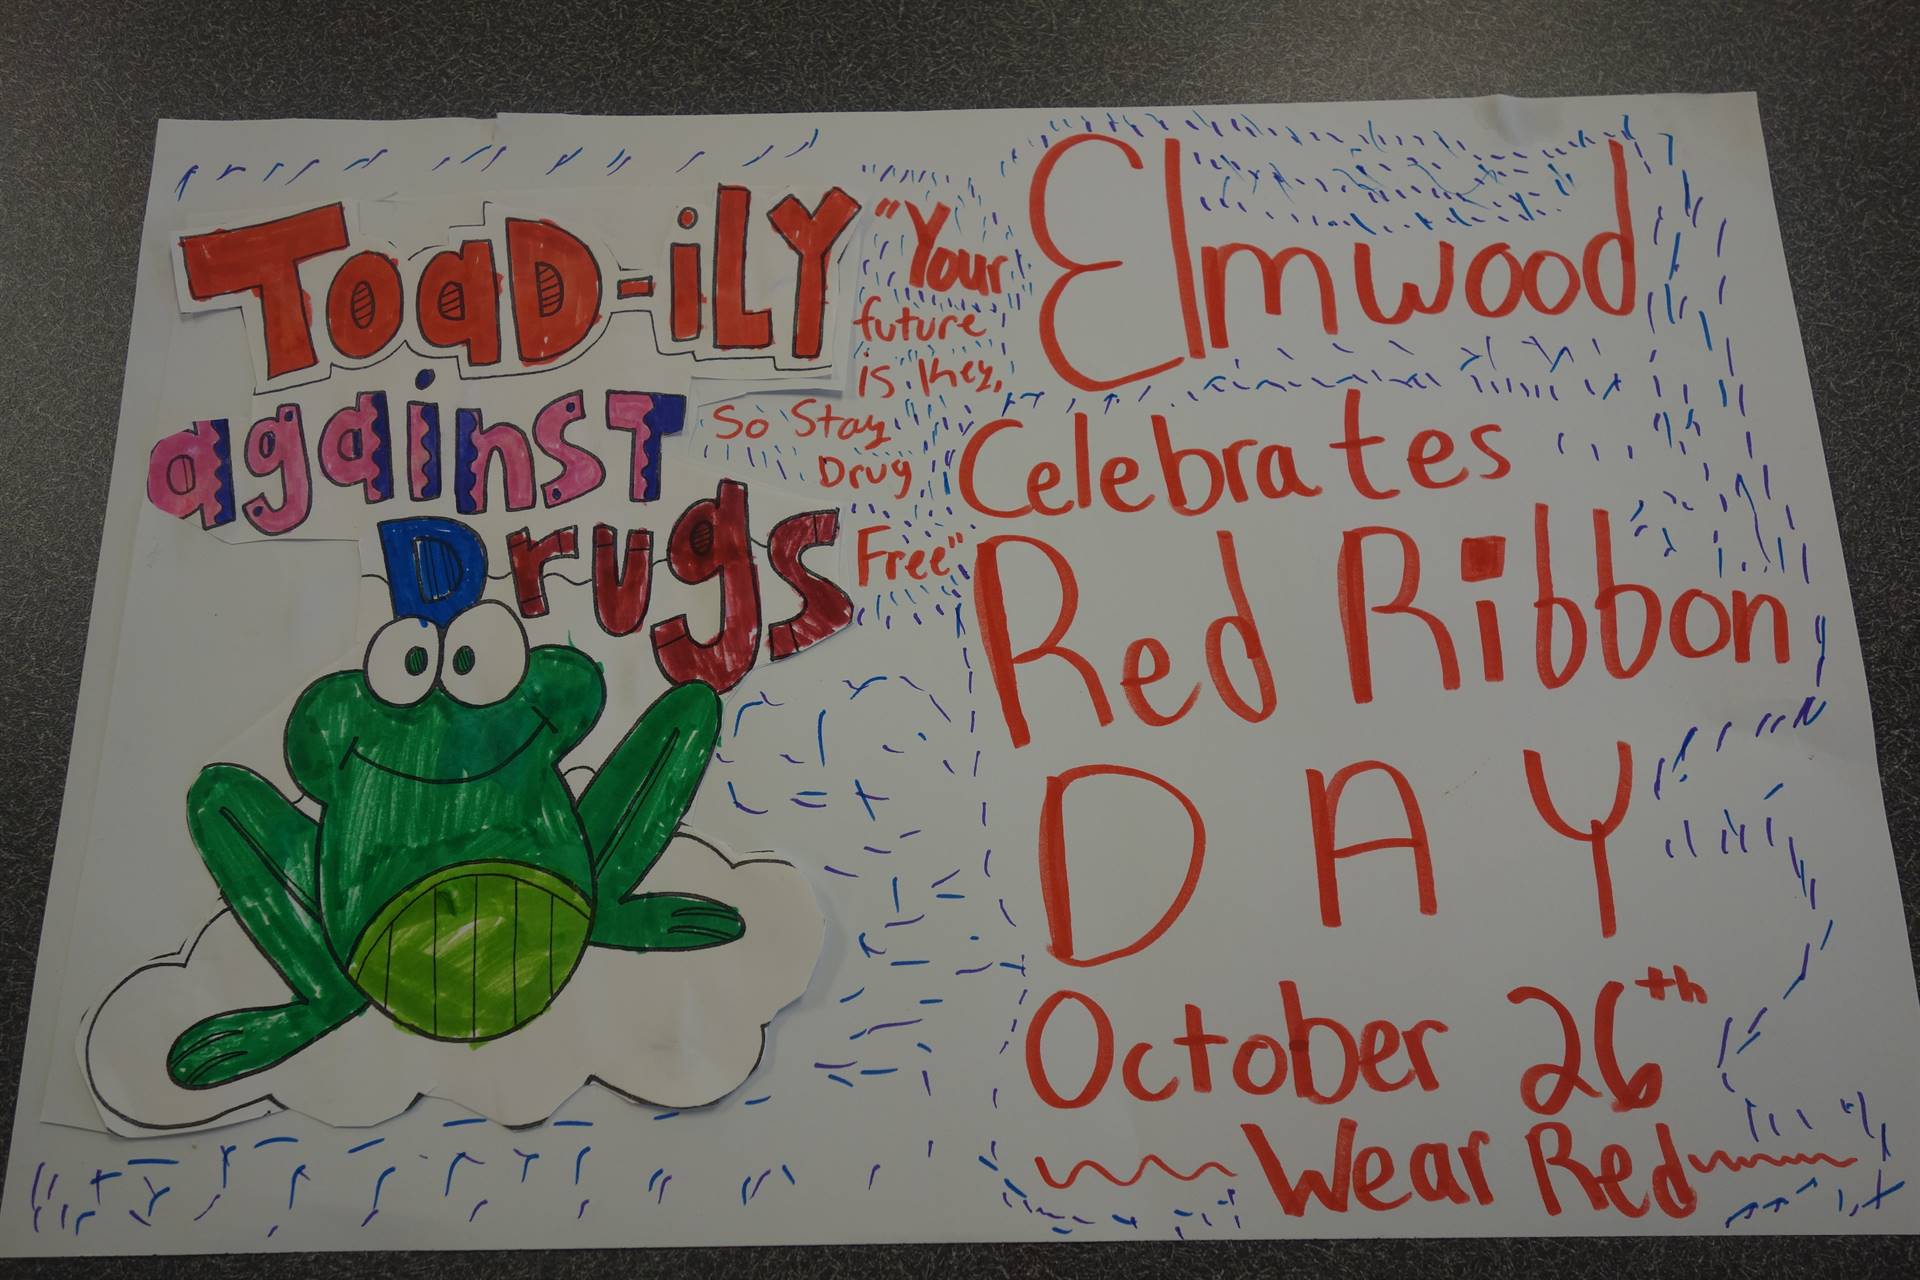 Toad-ily
against
Drugs
"Your
future
is key,
So Stay
Drug
Free"
Elmwood
Celebrates
Red Ribbon
DAY
October 26th
Wear Red